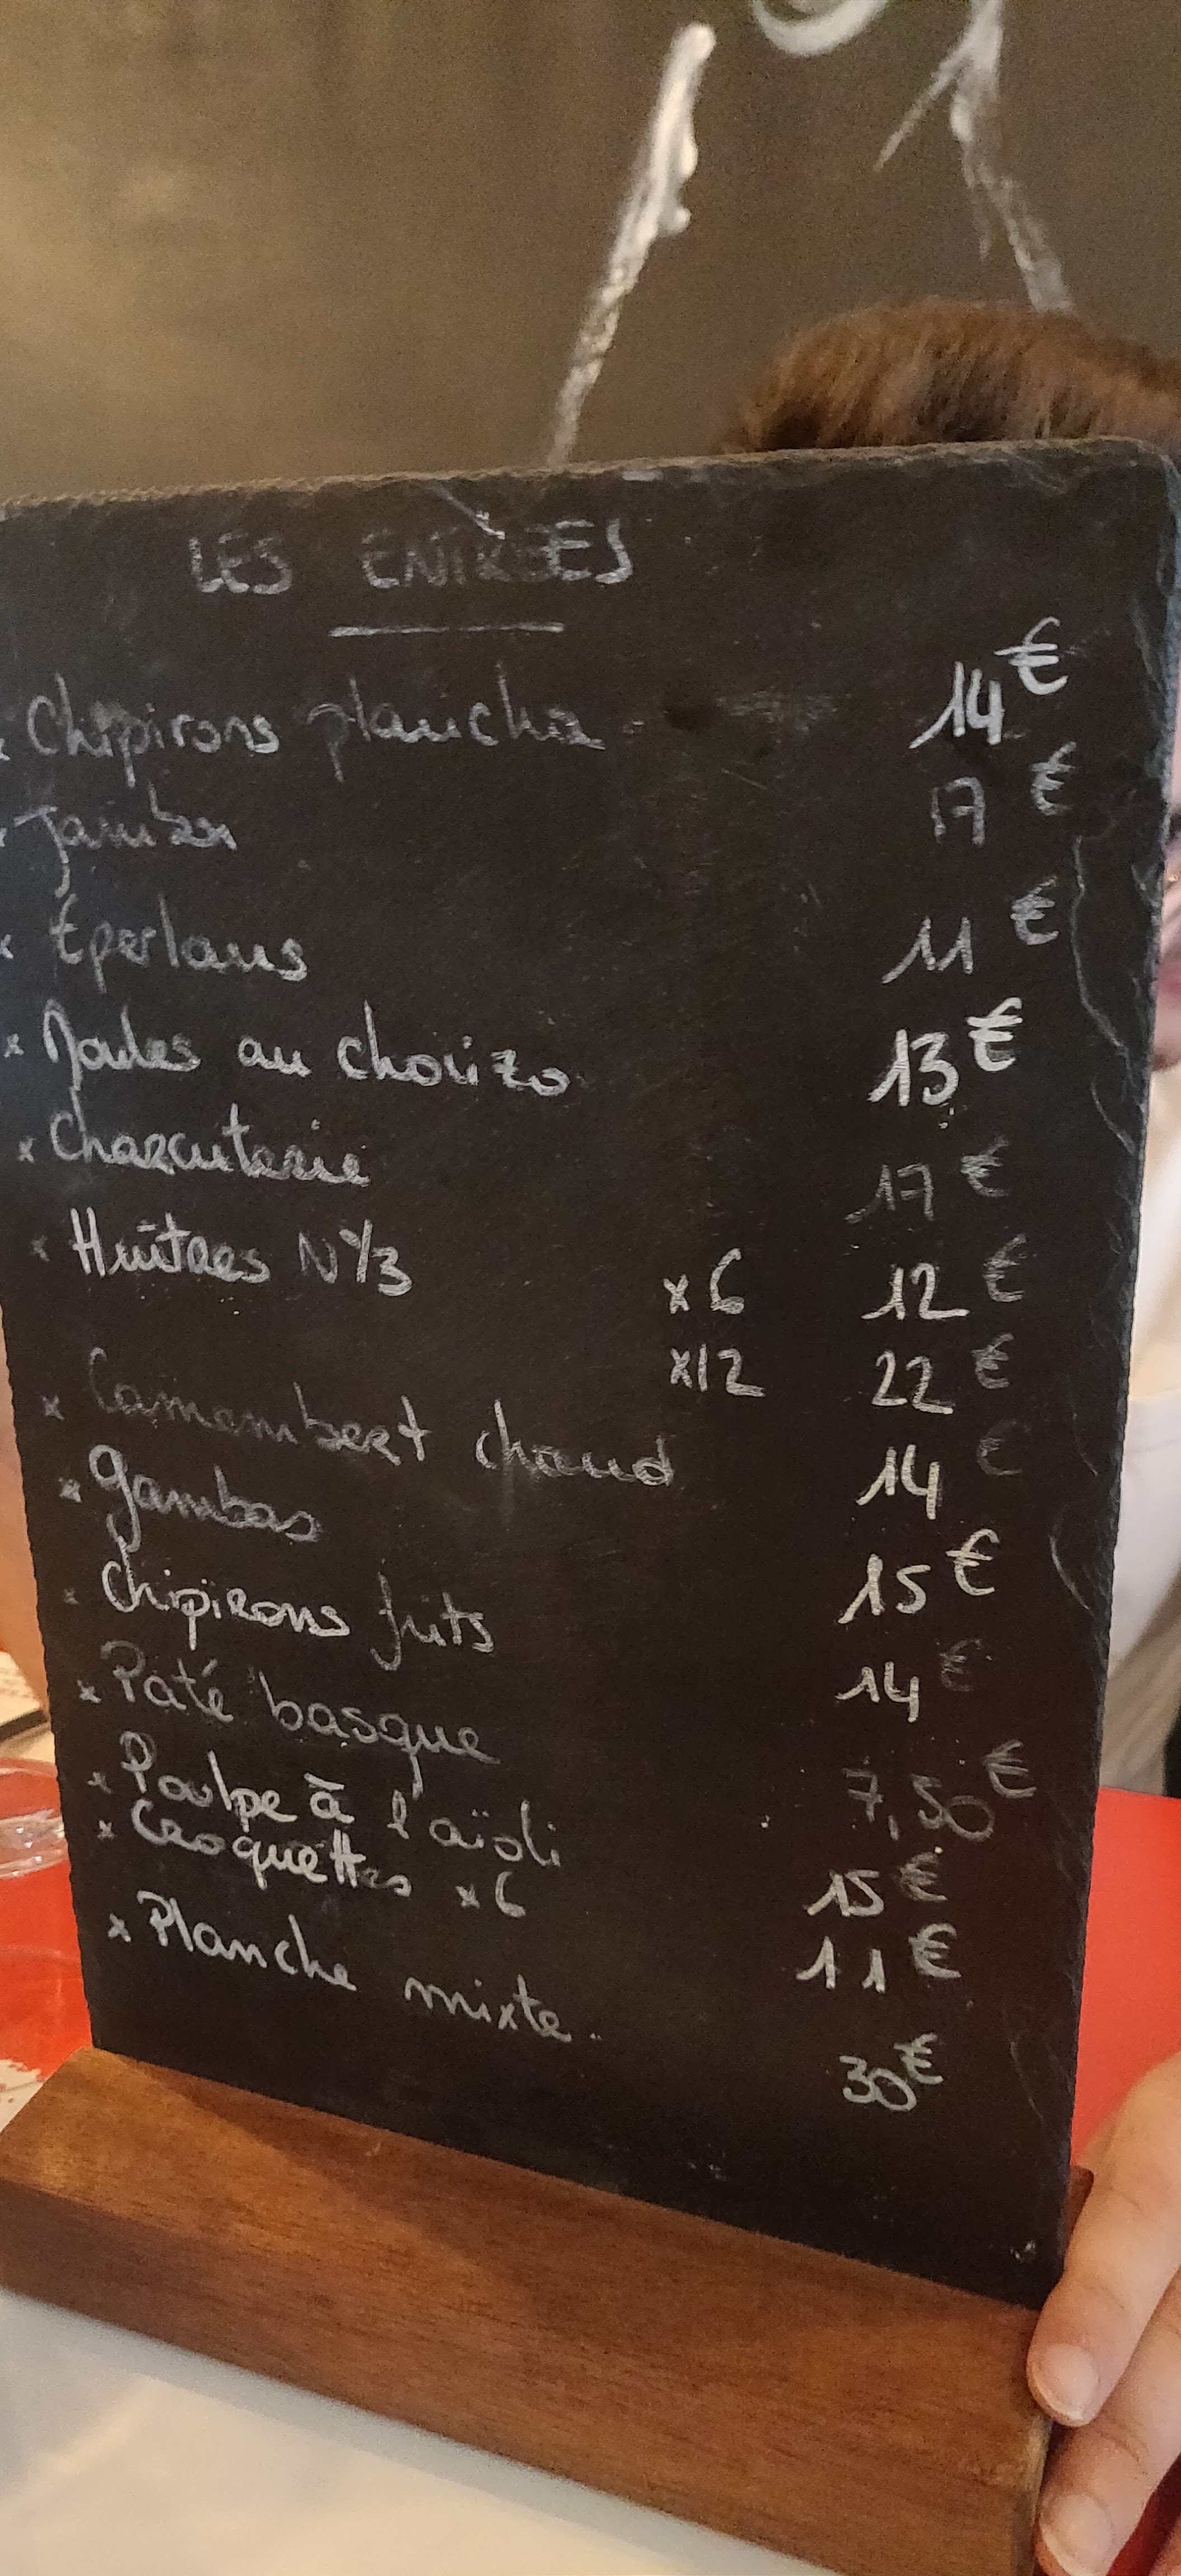 LES ENTRÉES
x Chipirons plancha 14€
x Jambon 17€
x Éperlans 11€
x Moules au chorizo 13€
x Charcuterie 17€
x Huîtres N°3 x6 12€
x12 22€
x Camembert chaud 14€
x Gambas 15€
x Chipirons frits 14€
x Paté basque 7,50€
x Poulpe à l'aïoli 15€
x Croquettes x6 11€
x Planche mixte 30€